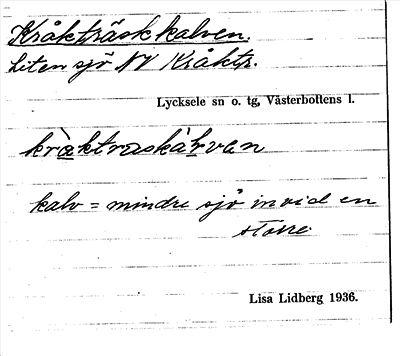 Kråkträskkalven.
Liten sjö NV Kråktr.
Lycksele sn o. tg, Västerbottens l.
kalv = mindre sjö invid en
större
Lisa Lidberg 1936.